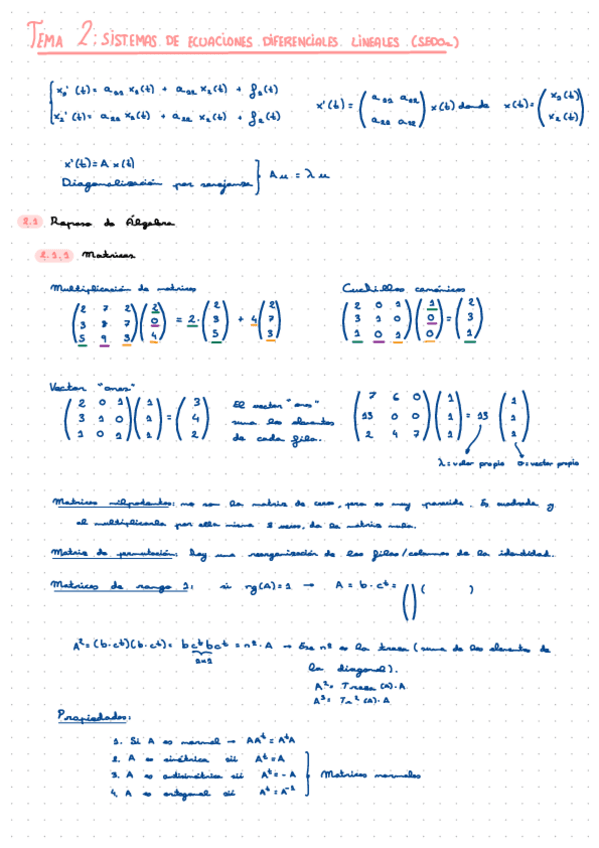 TEMA 2: SISTEMAS DE ECUACIONES DIFERENCIALES LINEALES (SEDOL)
x₁'(t) = a₁₁ x₁(t) + a₁₂ x₂(t) + f₁(t)
x₂'(t) = a₂₁ x₁(t) + a₂₂ x₂(t) + f₂(t)
x'(t) = (a₁₁ a₁₂ a₂₁ a₂₂) x(t) donde x(t) = (x₁(t) x₂(t))
x'(t) = A x(t)
Diagonalización por semejanza
A u = λ u
2.1 Repaso de Álgebra
2.1.1 Matrices
Multiplicación de matrices
(2 7 2
3 8 7
5 9 3) (2 0 4) = 2·(2 3 5) + 4(2 7 3)
Cuchillos canónicos
(2 0 1
3 1 0
1 0 1) (1 0 0) = (2 3 1)
Vector "ones"
(2 0 1
3 1 0
1 0 1) (1 1 1) = (3 4 2)
El vector "ones"
suma los elementos
de cada fila.
(7 6 0
13 0 0
2 4 7) (1 1 1) = 13 (1 1 1)
λ = valor propio
v = vector propio
Matrices nilpotentes: no son la matriz de ceros, pero es muy parecida. Es cuadrada y
al multiplicarla por ella misma veces, da la matriz nula.
Matriz de permutación: hay una reorganización de las filas/columnas de la identidad.
Matrices de rango 1: si rg(A)=1 → A = b·cᵗ = ( ) ( )
A² = (b·cᵗ)(b·cᵗ) = b cᵗb cᵗ = nº·A → Ese nº es la traza (suma de los elementos de
1x1
la diagonal).
A² = Traza(A)·A
A³ = Tr²(A)·A
Propiedades:
1. Si A es normal → AAᵗ = AᵗA
2. A es simétrica sii Aᵗ = A
3. A es antisimétrica sii Aᵗ = -A
4. A es ortogonal sii Aᵗ = A⁻¹
Matrices normales